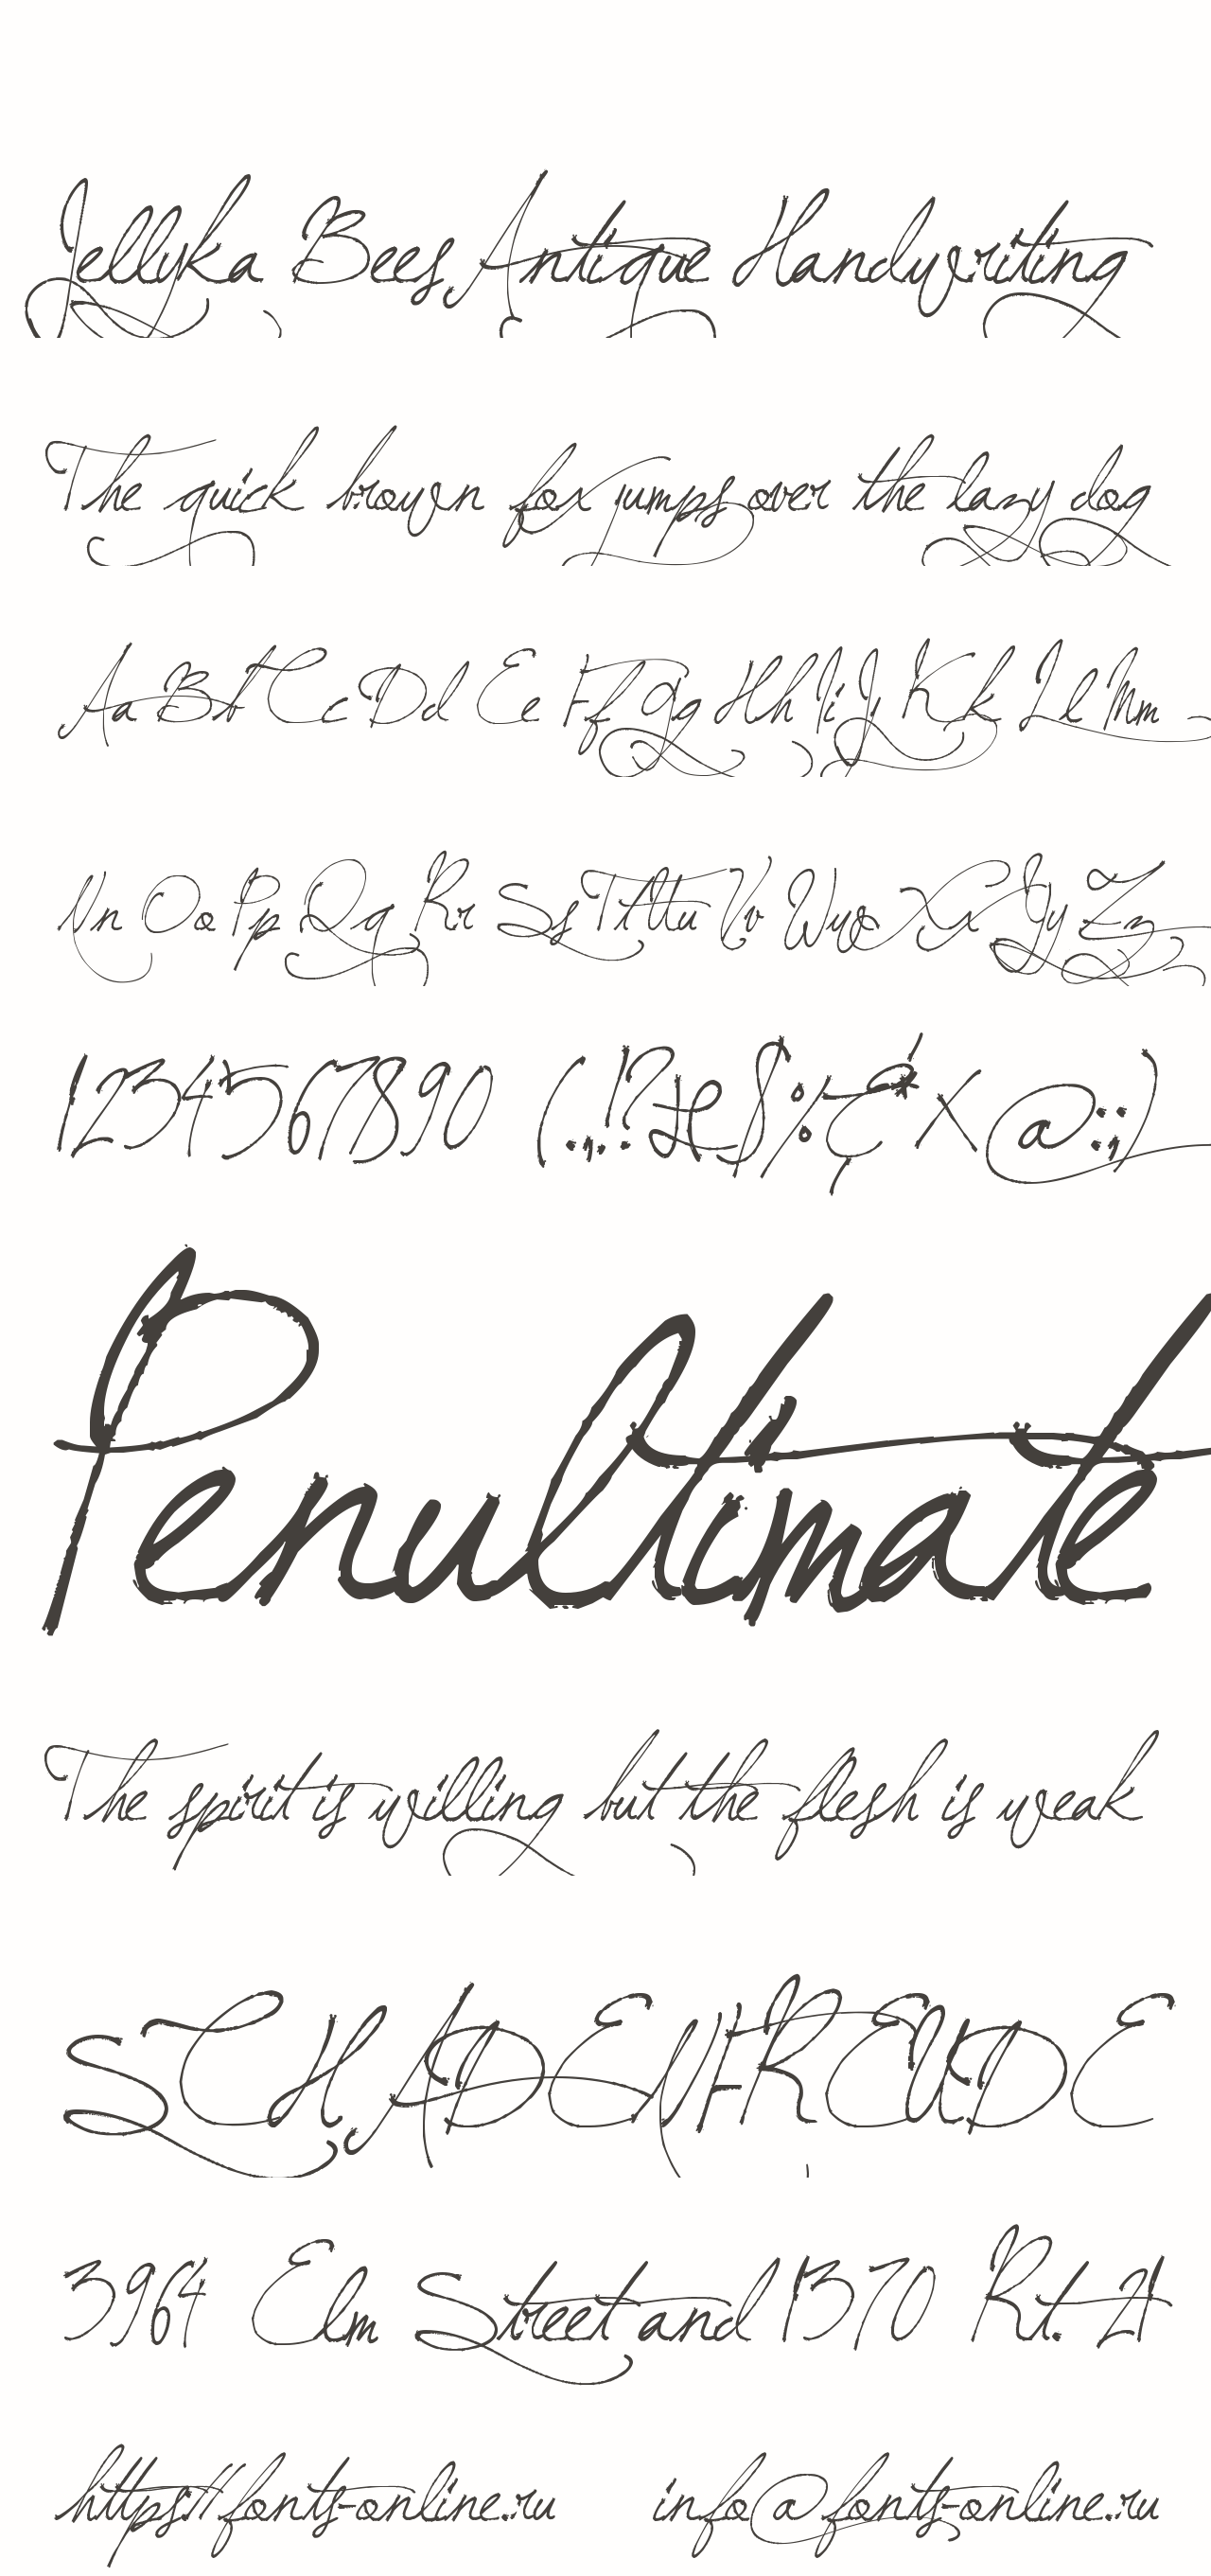 Jellyka Bees Antique Handwriting
The quick brown fox jumps over the lazy dog
Aa Bb Cc Dd Ee Ff Gg Hh Ii Jj Kk Ll Mm
Nn Oo Pp Qq Rr Ss Tt Uu Vv Ww Xx Yy Zz
1234567890 (.,!?:#$%
@:;)
Penultimate
The spirit is willing but the flesh is weak
SCHADENFREUDE
3964 Elm Street and 1370 Rt. 21
https://fonts-online.ru info@fonts-online.ru